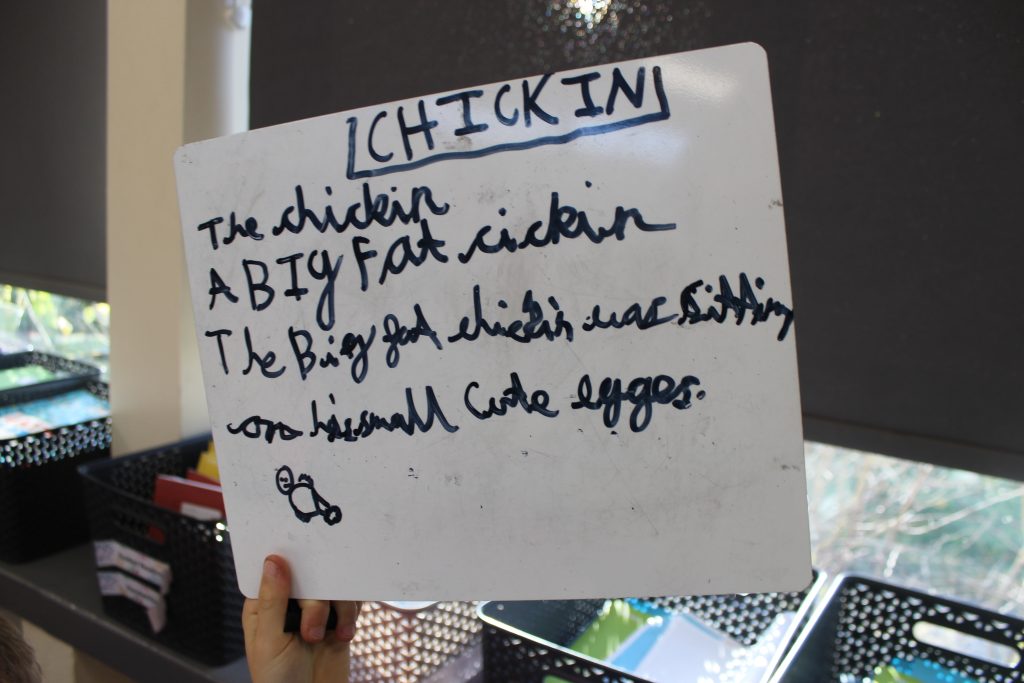 CHICKIN
The chickin
A BIg Fat cickin
The Big fat chickin was sitting
on his small Cute egges.